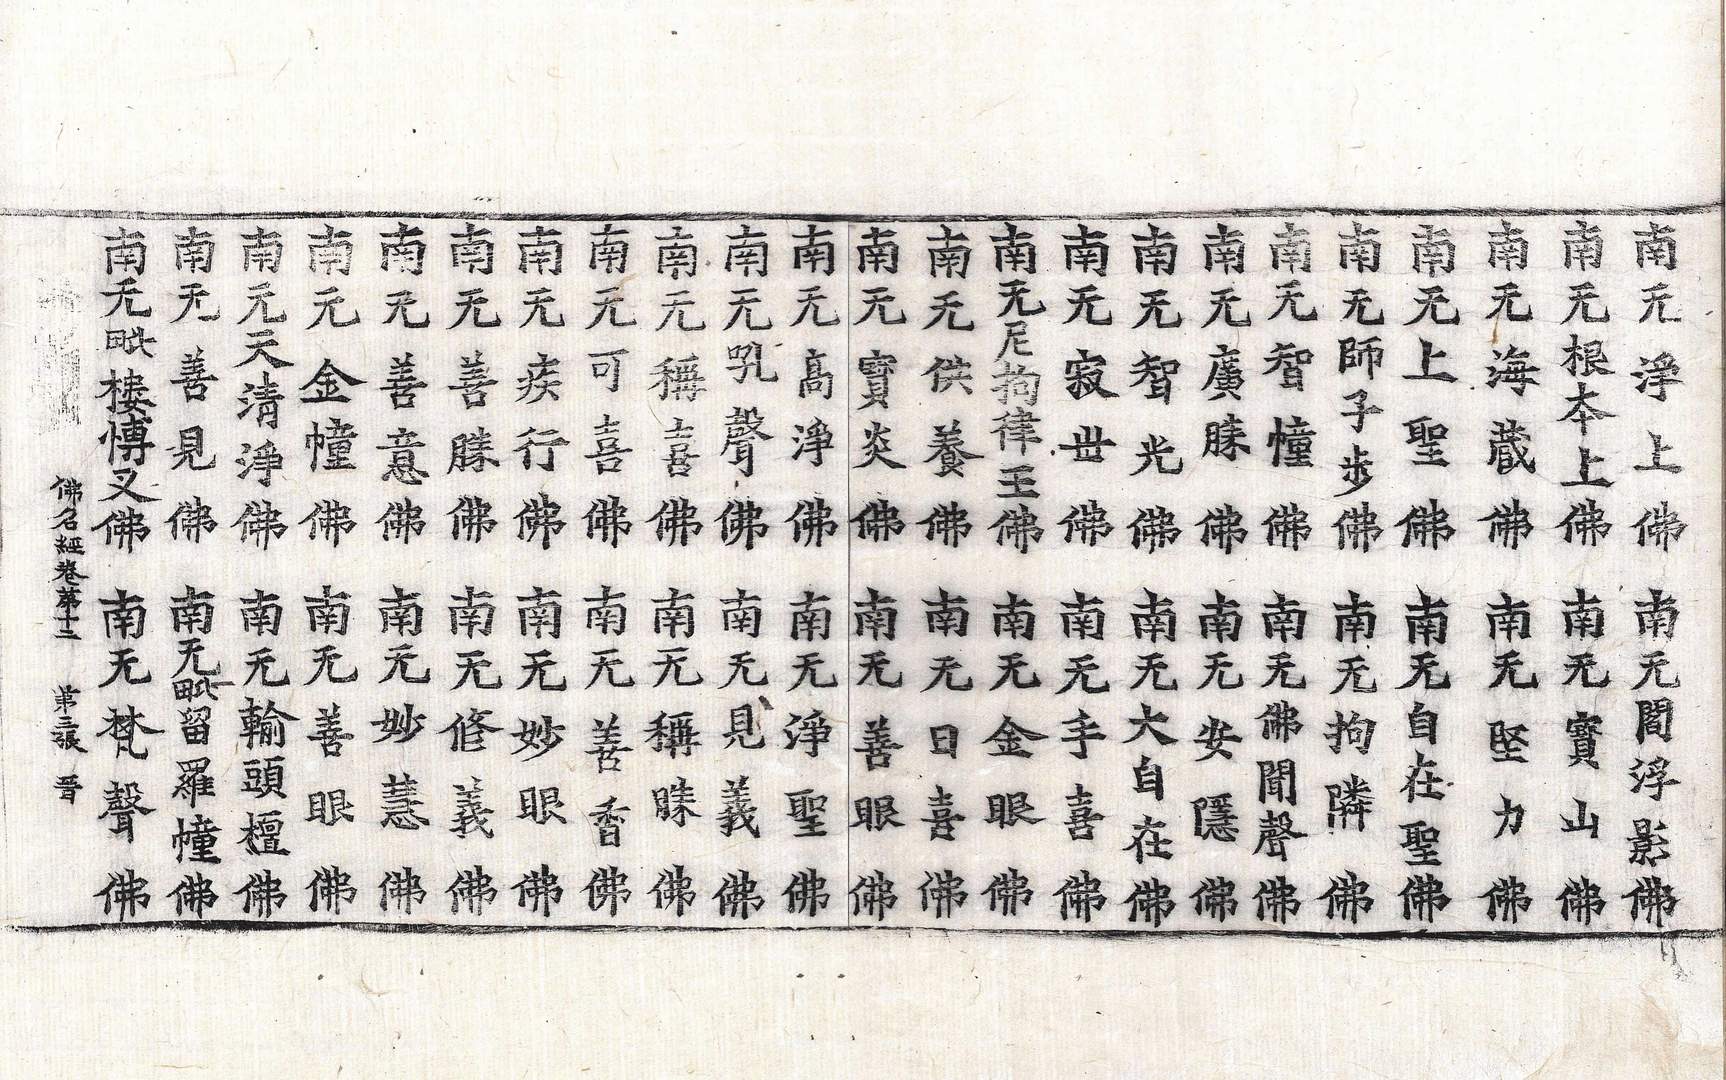 南无淨上佛 南无閻浮影佛
南无根本上佛 南无寶山佛
南无海藏佛 南无堅力佛
南无上聖佛 南无自在聖佛
南无師子步佛 南无拘隣佛
南无智幢佛 南无佛聞聲佛
南无廣勝佛 南无安隱佛
南无智光佛 南无大自在佛
南无寂世佛 南无手喜佛
南无尼拘律王佛 南无金眼佛
南无供養佛 南无日喜佛
南无寶炎佛 南无善眼佛
南无高淨佛 南无淨聖佛
南无吼聲佛 南无見義佛
南无稱喜佛 南无稱勝佛
南无可喜佛 南无善香佛
南无疾行佛 南无妙眼佛
南无善勝佛 南无修義佛
南无善意佛 南无妙慧佛
南无金幢佛 南无善眼佛
南无天清淨佛 南无輸頭檀佛
南无善見佛 南无毗留羅幢佛
南无毗樓博叉佛 南无梵聲佛
佛名經卷第十二 第三張 晋